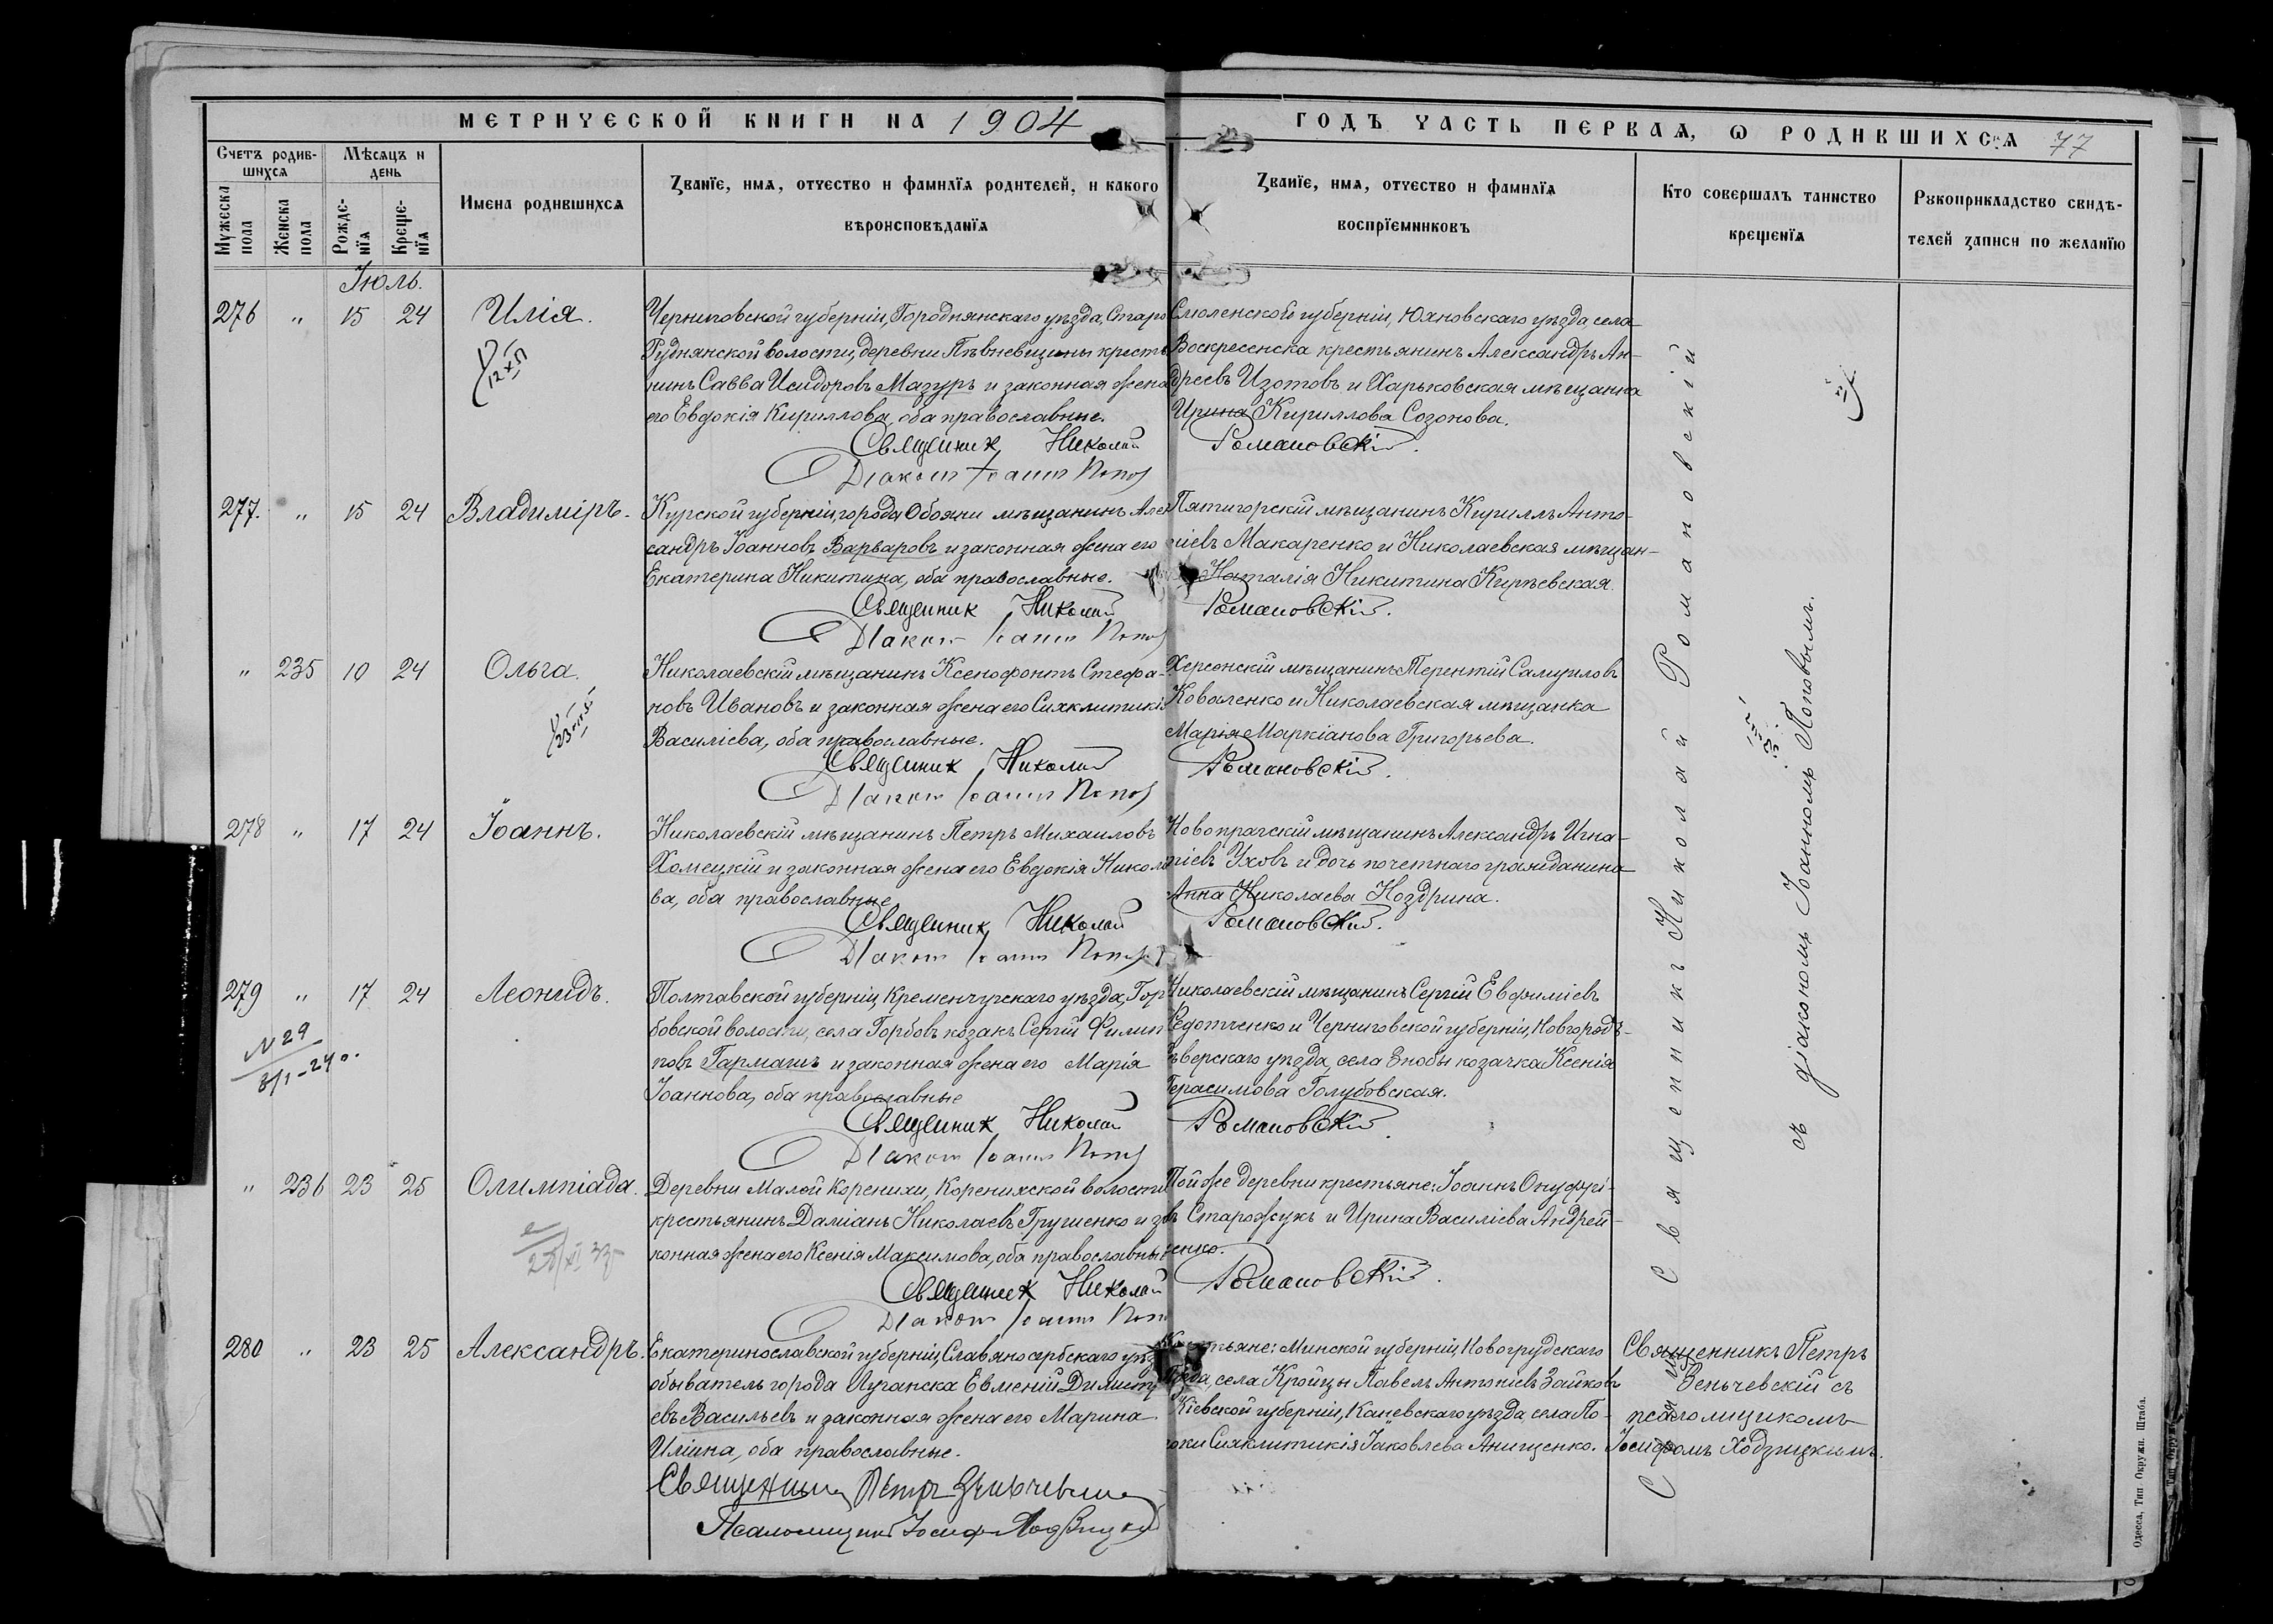 МЕТРИЧЕСКОЙ КНИГИ НА 1904
ГОДЪ ЧАСТЬ ПЕРВАЯ, Ѡ РОДИВШИХСЯ 77
Счетъ родив-
шихся
Мѣсяцъ и
день
Мужеска
пола
Женска
пола
Рожде-
нїя
Креще-
нїя
Имена родившихся
Званїе, имя, отчество и фамилїя родителей, и какого
вѣроисповѣданїя
Званїе, имя, отчество и фамилїя
воспрїемниковъ
Кто совершалъ таинство
крещенїя
Рукоприкладство свидѣ-
телей записи по желанїю
Іюль.
276 " 15 24 Илія.
Черниговской губерніи, Городнянскаго уѣзда, Старо
Руднянской волости, деревни Пѣвневщины крестья
нинъ Савва Исидоровъ Мазуръ и законная жена
его Евдокія Кириллова, оба православные.
Смоленской губерніи, Юхновскаго уѣзда, села
Воскресенска крестьянинъ Александръ Ан-
дреевъ Изотовъ и Харьковская мѣщанка
Ирина Кириллова Созонова.
Священникъ Николай Романовскій.
Діаконъ Іоаннъ Попов
277. " 15 24 Владиміръ.
Курской губерніи, города Обояни мѣщанинъ Алек
сандръ Іоанновъ Варваровъ и законная жена его
Екатерина Никитина, оба православные.
Пятигорскій мѣщанинъ Кириллъ Анто-
ніевъ Макаренко и Николаевская мѣщан-
Наталія Никитина Кирѣевская.
Священникъ Николай Романовскій.
Діаконъ Іоаннъ Попов
" 235 10 24 Ольга.
Николаевскій мѣщанинъ Ксенофонтъ Стефа-
новъ Ивановъ и законная жена его Синклитикія
Василіева, оба православные.
Херсонскій мѣщанинъ Терентій Самуиловъ
Коваленко и Николаевская мѣщанка
Марія Маркіанова Григорьева.
Священникъ Николай Романовскій.
Діаконъ Іоаннъ Попов
278 " 17 24 Іоаннъ.
Николаевскій мѣщанинъ Петръ Михаиловъ
Хомецкій и законная жена его Евдокія Никола
ва, оба православные
Новопражскій мѣщанинъ Александръ Игна-
тіевъ Уховъ и дочь почетнаго гражданина
Анна Николаева Ноздрина.
Священникъ Николай Романовскій.
Діаконъ Іоаннъ Попов
279 " 17 24 Леонидъ.
N 29
Полтавской губерніи, Кременчугскаго уѣзда, Гор
бовской волости, села Горбовъ козакъ Сергій Филип
повъ Гармашъ и законная жена его Марія
Іоаннова, оба православные
Николаевскій мѣщанинъ Сергій Евфиміевъ
Федотченко и Черниговской губерніи, Новгородъ-
Сѣверскаго уѣзда, села Знобы козачка Ксенія
Герасимова Голубовская.
Священникъ Николай Романовскій.
Діаконъ Іоаннъ Попов
" 236 23 25 Олимпіада.
Деревни Малой Коренихи, Коренихской волости
крестьянинъ Даміанъ Николаевъ Грушенко и за
конная жена его Ксенія Максимова, оба православные
Той же деревни крестьяне: Іоаннъ Онуфрі-
евъ Старожукъ и Ирина Василіева Андрей-
ченко.
Священникъ Николай Романовскій.
Діаконъ Іоаннъ Поп
Священникъ Николай Романовскій
съ діакономъ Іоанномъ Поповымъ.
280 " 23 25 Александръ.
Екатеринославской губерніи, Славяносербскаго уѣз
обыватель города Луганска Евменій Димитрі
евъ Васильевъ и законная жена его Марина
Иліина, оба православные.
Крестьяне: Минской губерніи, Новогрудскаго
уѣзда, села Кройцы Павелъ Антоніевъ Зайковъ
Кіевской губерніи, Каневскаго уѣзда, села По-
токи Синклитикія Іаковлева Анищенко.
Священникъ Петръ
Зеньчевскій съ
псаломщикомъ
Іосифомъ Ходзицкимъ.
Священникъ Петръ Зеньчевскій
Псаломщикъ Іосифъ Ходзицкій
Одесса, Тип. Окружн. Штаба.